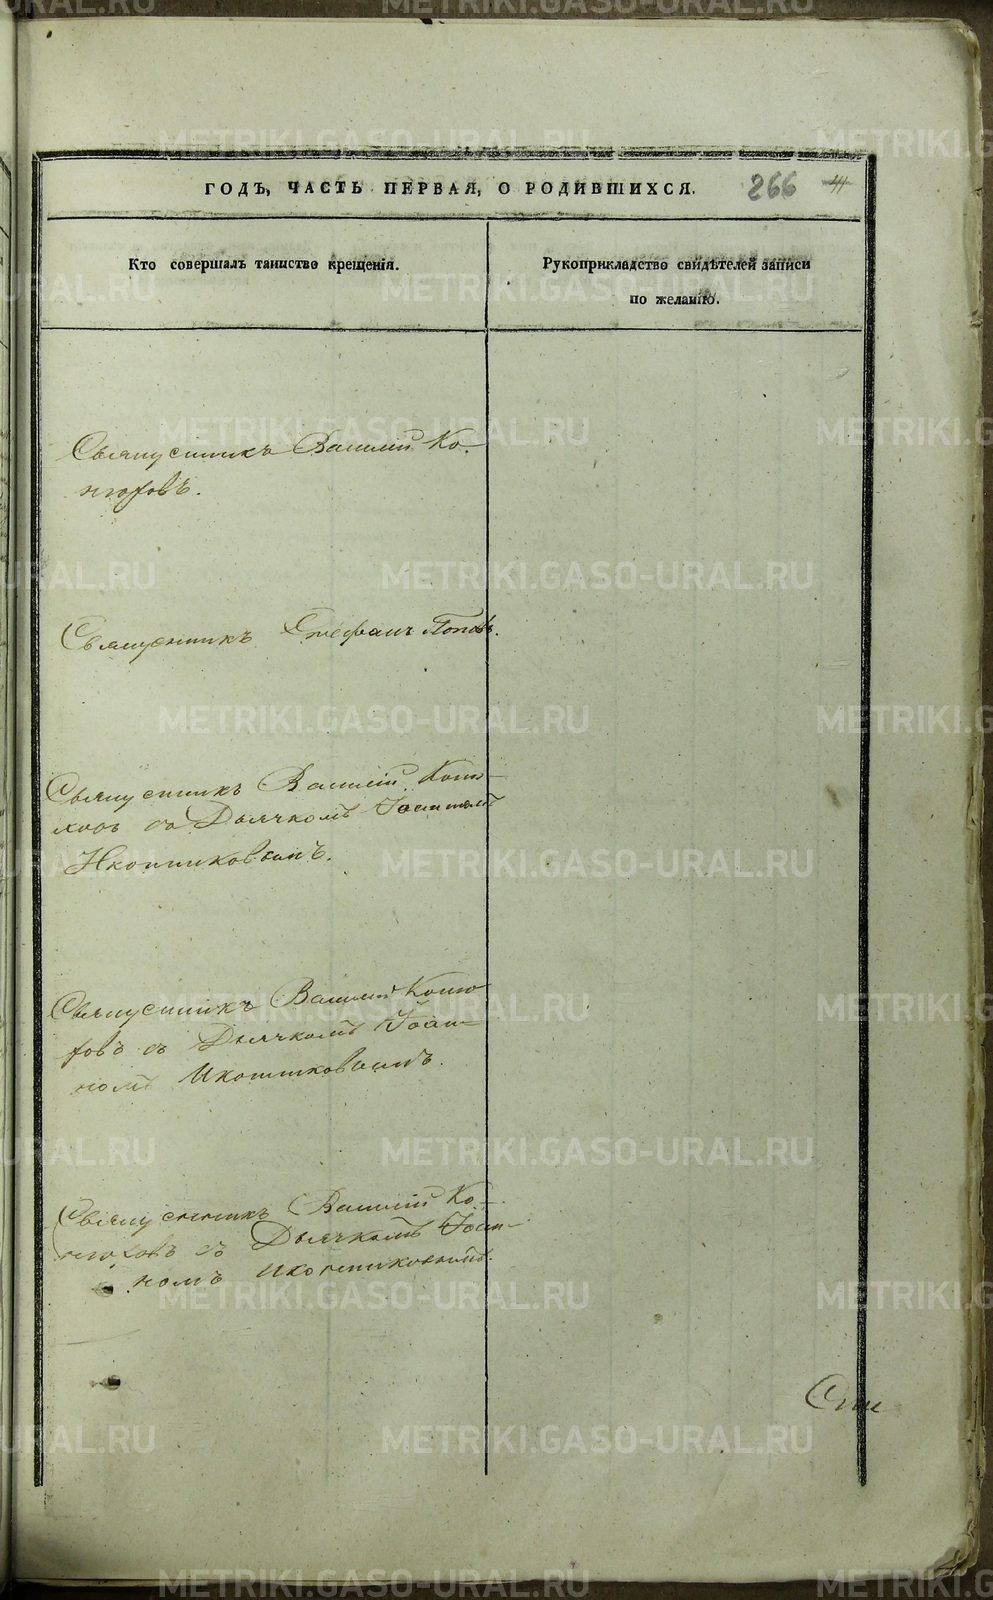 ГОДЪ, ЧАСТЬ ПЕРВАЯ, О РОДИВШИХСЯ. 266 11
Кто совершалъ таинство крещенія.
Рукоприкладство свидѣтелей записи
по желанію.
Священникъ Василій Ко-
нюховъ.
Священникъ Стефанъ Поповъ.
Священникъ Василій Коню-
ховъ съ Дьячкомъ Іоанномъ
Иконниковымъ.
Священникъ Василій Коню
ховъ съ Дьячкомъ Іоан-
номъ Иконниковымъ.
Священникъ Василій Ко-
нюховъ съ Дьячкомъ Іоан-
номъ Иконниковымъ.
METRIKI.GASO-URAL.RU